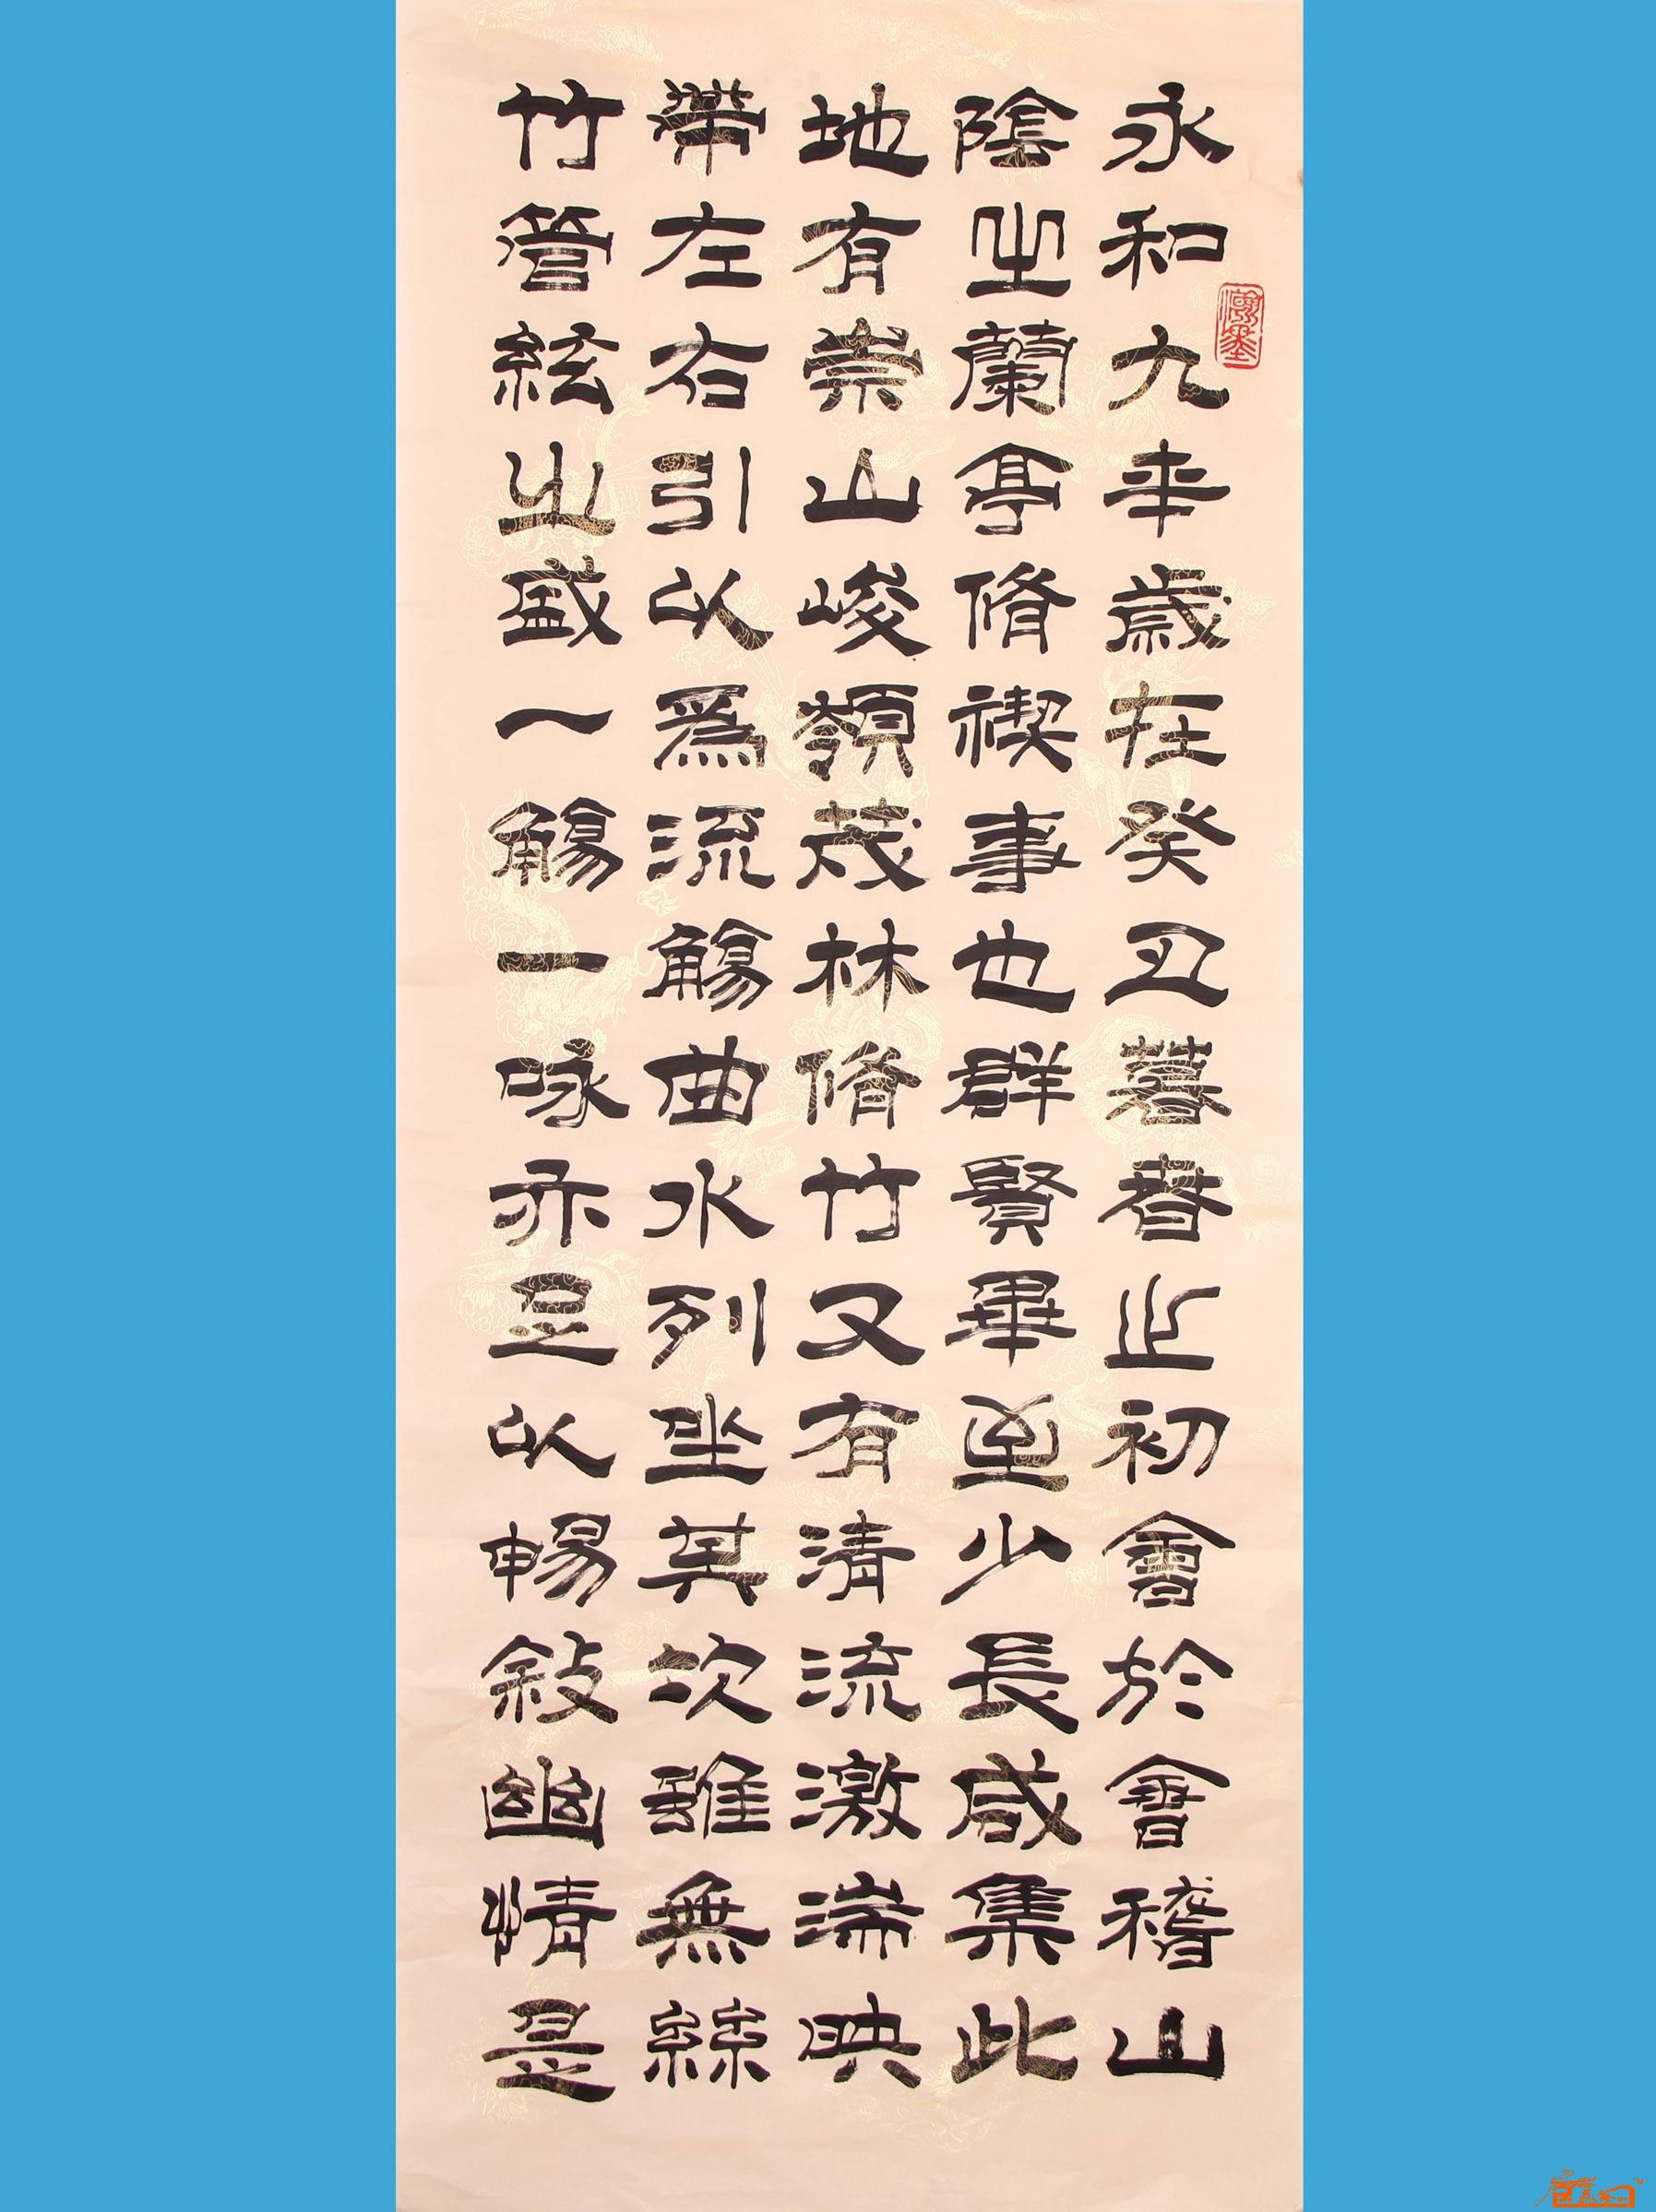 永和九年歲在癸丑暮春之初會於會稽山
陰之蘭亭脩禊事也群賢畢至少長咸集此
地有崇山峻領茂林脩竹又有清流激湍映
帶左右引以為流觴曲水列坐其次雖無絲
竹管絃之盛一觴一咏亦足以暢敍幽情是
瀚墨